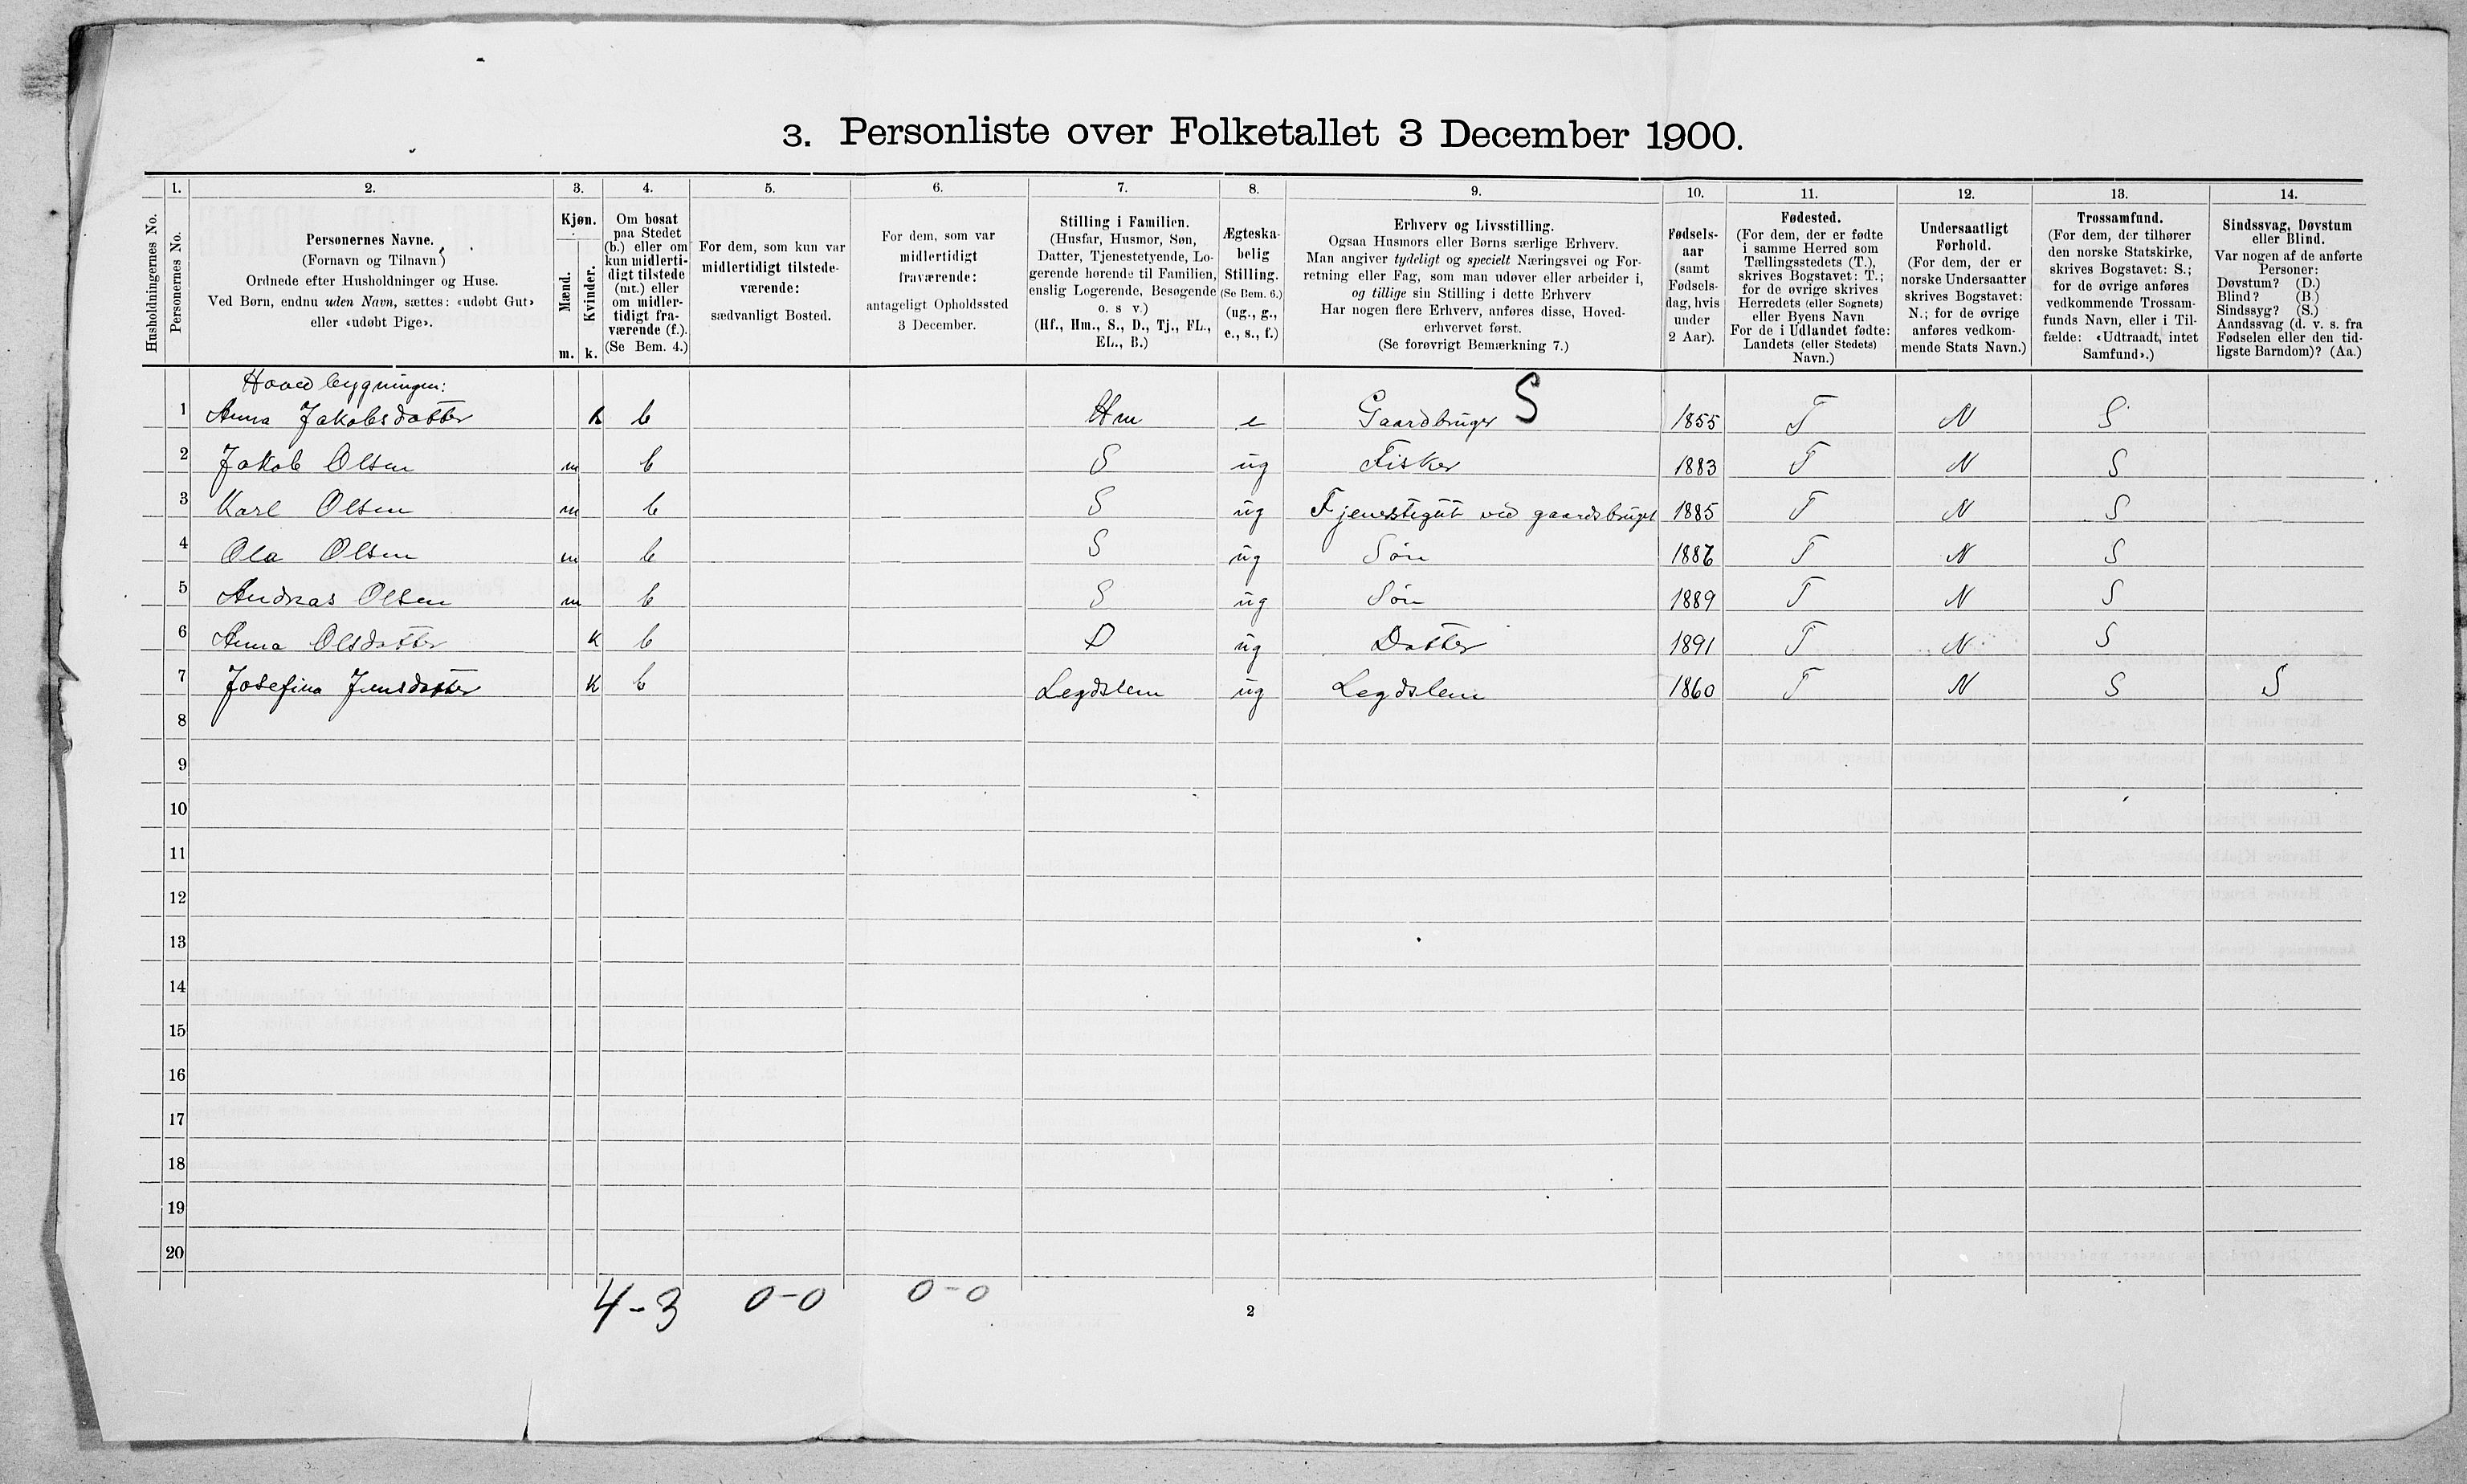 3. Personliste over Folketallet 3 December 1900.
Husholdningernes No.
1.
Personernes No.
2.
Personernes Navne.
(Fornavn og Tilnavn)
Ordnede efter Husholdninger og Huse.
Ved Børn, endnu uden Navn, sættes: «udøbt Gut»
eller «udøbt Pige».
3.
Kjøn.
Mænd.
Kvinder.
m. k.
4.
Om bosat
paa Stedet
(b.) eller om
kun midlerti-
digt tilstede
(mt.) eller
om midler-
tidigt fra-
værende (f.).
(Se Bem. 4.)
5.
For dem, som kun var
midlertidigt tilstede-
værende:
sædvanligt Bosted.
6.
For dem, som var
midlertidigt
fraværende:
antageligt Opholdssted
3 December.
7.
Stilling i Familien.
(Husfar, Husmor, Søn,
Datter, Tjenestetyende, Lo-
gerende hørende til Familien,
enslig Logerende, Besøgende
o. s v.)
(Hf., Hm., S., D., Tj., FL.,
EL., B.)
8.
Ægteska-
belig
Stilling.
(Se Bem. 6.)
(ug., g.,
e., s., f.)
9.
Erhverv og Livsstilling.
Ogsaa Husmors eller Børns særlige Erhverv.
Man angiver tydeligt og specielt Næringsvei og For-
retning eller Fag, som man udøver eller arbeider i,
og tillige sin Stilling i dette Erhverv
Har nogen flere Erhverv, anføres disse, Hoved-
erhvervet først.
(Se forøvrigt Bemærkning 7.)
10.
Fødsels-
aar
(samt
Fødsels-
dag, hvis
under
2 Aar).
11.
Fødested.
(For dem, der er fødte
i samme Herred som
Tællingsstedets (T.),
skrives Bogstavet: T.;
for de øvrige skrives
Herredets (eller Sognets)
eller Byens Navn
For de i Udlandet fødte:
Landets (eller Stedets)
Navn.)
12.
Undersaatligt
Forhold.
(For dem, der er
norske Undersaatter
skrives Bogstavet:
N.; for de øvrige
anføres vedkom-
mende Stats Navn.)
13.
Trossamfund.
(For dem, der tilhører
den norske Statskirke,
skrives Bogstavet: S.;
for de øvrige anføres
vedkommende Trossam-
funds Navn, eller i Til-
fælde: «Udtraadt, intet
Samfund».)
14.
Sindssvag, Døvstum
eller Blind.
Var nogen af de anførte
Personer:
Døvstum? (D.)
Blind? (B.)
Sindssyg? (S.)
Aandssvag (d. v. s. fra
Fødselen eller den tid-
ligste Barndom)? (Aa.)
Hovedbygningen:
1 Anna Jakobsdatter k b Hm e Gaardbruger S 1855 T N S
2 Jakob Olsen m b S ug Fisker 1883 T N S
3 Karl Olsen m b S ug Tjenestegut ved gaardsbruget 1885 T N S
4 Ola Olsen m b S ug Søn 1886 T N S
5 Andreas Olsen m b S ug Søn 1889 T N S
6 Anna Olsdatter k b D ug Datter 1891 T N S
7 Josefina Jensdatter k b Legdslem ug Legdslem 1860 T N S S
8
9
10
11
12
13
14
15
16
17
18
19
20
4-3 0-0 0-0
2